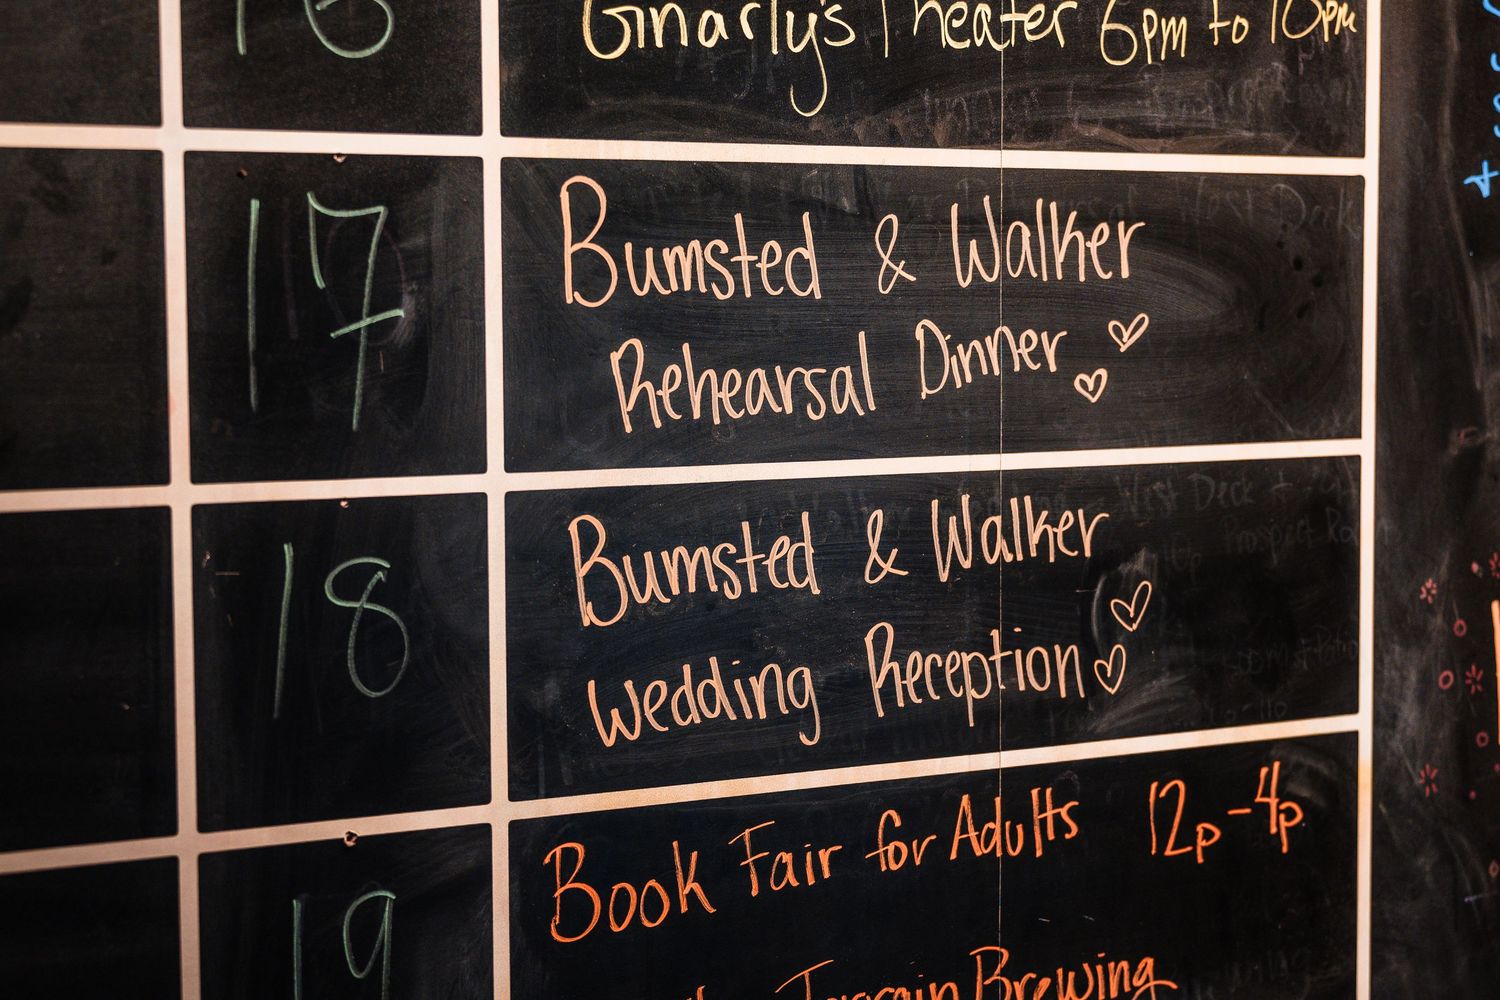 16
Gnarly's Theater 6pm to 10pm
17
Bumsted & Walker
Rehearsal Dinner
18
Bumsted & Walker
Wedding Reception
19
Book Fair for Adults 12p-4p
Terrain Brewing